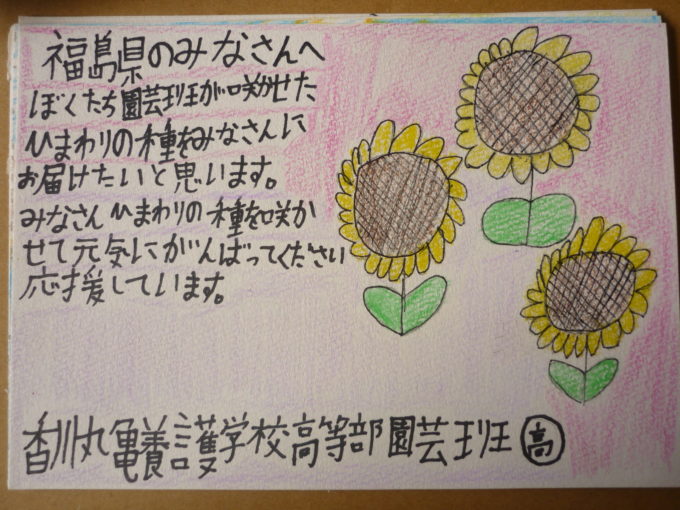 福島県のみなさんへ
ぼくたち園芸班が咲かせた
ひまわりの種をみなさんに
お届けたいと思います。
みなさんひまわりの種を咲か
せて元気にがんばってください
応援しています。
香川丸亀養護学校高等部園芸班 高